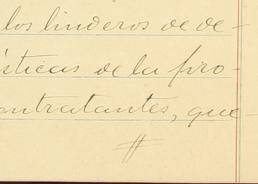 los linderos de de-
sticas de la pro-
ontratantes, que-